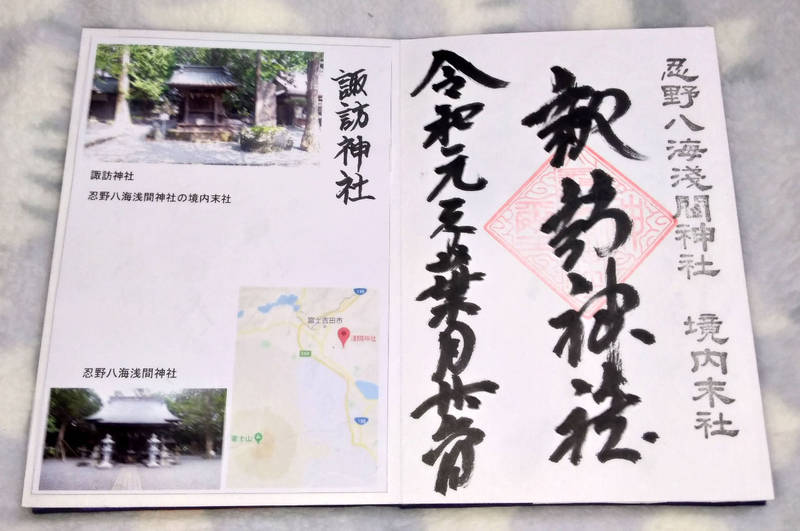 忍野八海淺間神社 境内末社
諏訪神社
令和元年葉月廿
諏訪神社
諏訪神社
忍野八海浅間神社の境内末社
富士吉田市
浅間神社
富士山
忍野八海浅間神社